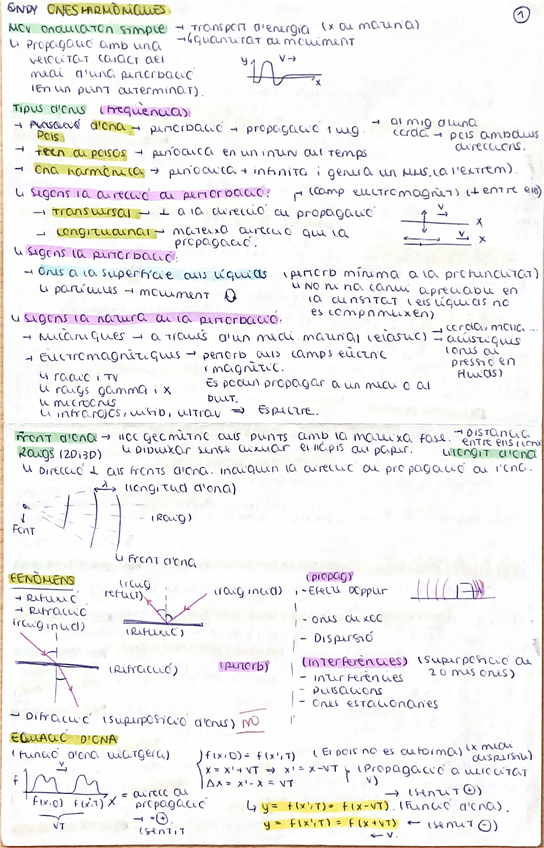 ONDY ONES HARMÒNIQUES
1
MOV ONDULATORI SIMPLE → Transport d'energia (x de matèria)
→ quantitat de moviment
↳ Propagació amb una
velocitat caract del
medi d'una pertorbació
(En un punt determinat).
y v→
x
Tipus d'ones (Freqüència)
→ d'ona → pertorbació → propagació 1 → al mig d'una
corda → pols ambdues
direccions.
Pols
→ Tren de polsos → periòdica en un interv del temps
→ Ona harmònica → periòdica + infinita i genera un MHS (a l'extrem).
↳ Segons la direcció de pertorbació: (camp electromagnèt) (⊥ entre ells)
→ Transversal → ⊥ a la direcció de propagació
→ Longitudinal → mateixa direcció que la
propagació.
v x
v x
↳ Segons la pertorbació:
→ Ones a la superfície dels líquids (pertorb mínima a la profunditat)
↳ partícules → moviment
↳ No hi ha canvi apreciable en
la densitat (els líquids no
es comprimeixen)
↳ Segons la natura de la pertorbació:
→ Mecàniques → a través d'un medi material (elàstic) → corda, molla...
→ acústiques
(ones de
pressió en
fluids)
→ Electromagnètiques → pertorb dels camps elèctric
i magnètic.
↳ radio i TV
Es poden propagar a un medi o al
↳ raigs gamma i X
buit.
↳ microones
↳ infrarojos, visib, ultrav ⇒ Espectre.
Front d'ona → lloc geomètric dels punts amb la mateixa fase. → Distància
entre ells
Raigs (2D, 3D) ↳ Dibuixar sense aixecar el llapis del paper. ↳ longit d'ona
↳ Direcció ⊥ als fronts d'ona. Indiquen la direcció de propagació de l'ona.
λ (longitud d'ona)
- (Raig)
Font
↳ Front d'ona
FENÒMENS
→ Reflexió
→ Refracció
(raig incid)
(Refracció)
(raig
reflect)
(raig incid)
(Reflexió)
(propag)
- Efecte Doppler
- Ones de xoc
- Dispersió
(pertorb)
(Interferències) (superposició de
2 o més ones)
- Interferències
- Pulsacions
- Ones estacionàries
- Difracció (superposició d'ones) NO
EQUACIÓ D'ONA
(Funció d'ona viatgera)
f v
f(x,0) f(x',T) x
VT
= direcc de
propagació
→ ⊕
(sentit
f(x,0) = f(x',T) (El pols no es deforma) (x medi
dispersiu)
x = x' + VT → x' = x - VT (Propagació a velocitat
v)
Δx = x' - x = VT
→ (sentit ⊕)
↳ y = f(x',T) = f(x-vT). (Funció d'ona).
y = f(x',T) = f(x+vT) ← (sentit ⊖)
← v.